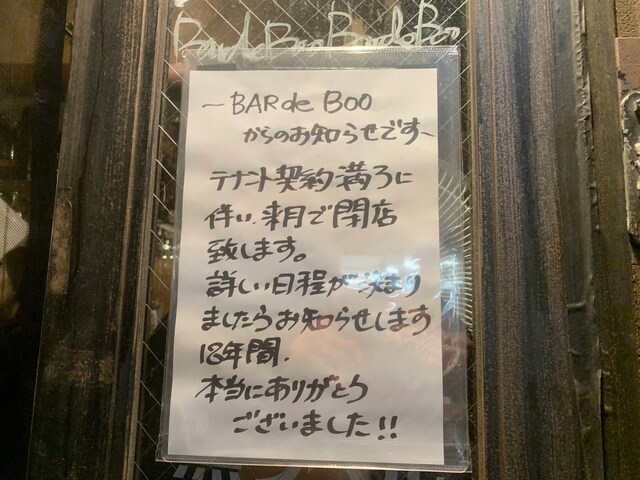 Bar de Boo Bar de Boo
～BAR de BOO
からのお知らせです～
テナント契約満了に
伴い、来月で閉店
致します。
詳しい日程が決まり
ましたらお知らせします
18年間、
本当にありがとう
ございました!!